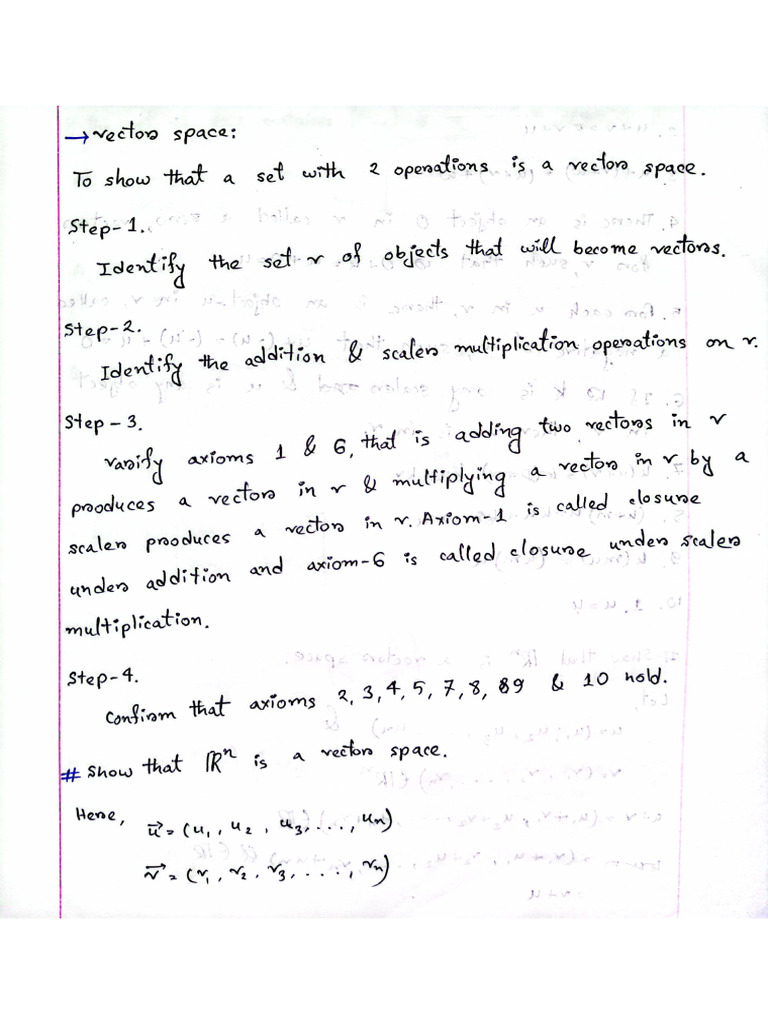 → vector space:
To show that a set with 2 operations is a vector space.
Step-1.
Identify the set v of objects that will become vectors.
Step-2.
Identify the addition & scaler multiplication operations on v.
Step-3.
varify axioms 1 & 6, that is adding two vectors in v
produces a vector in v & multiplying a vector in v by a
scaler produces a vector in v. Axiom-1 is called closure
under addition and axiom-6 is called closure under scaler
multiplication.
Step-4.
Confirm that axioms 2, 3, 4, 5, 7, 8, 89 & 10 hold.
# Show that ℝⁿ is a vector space.
Here,
u⃗ = (u₁, u₂, u₃, . . . , uₙ)
v⃗ = (v₁, v₂, v₃, . . . , vₙ)